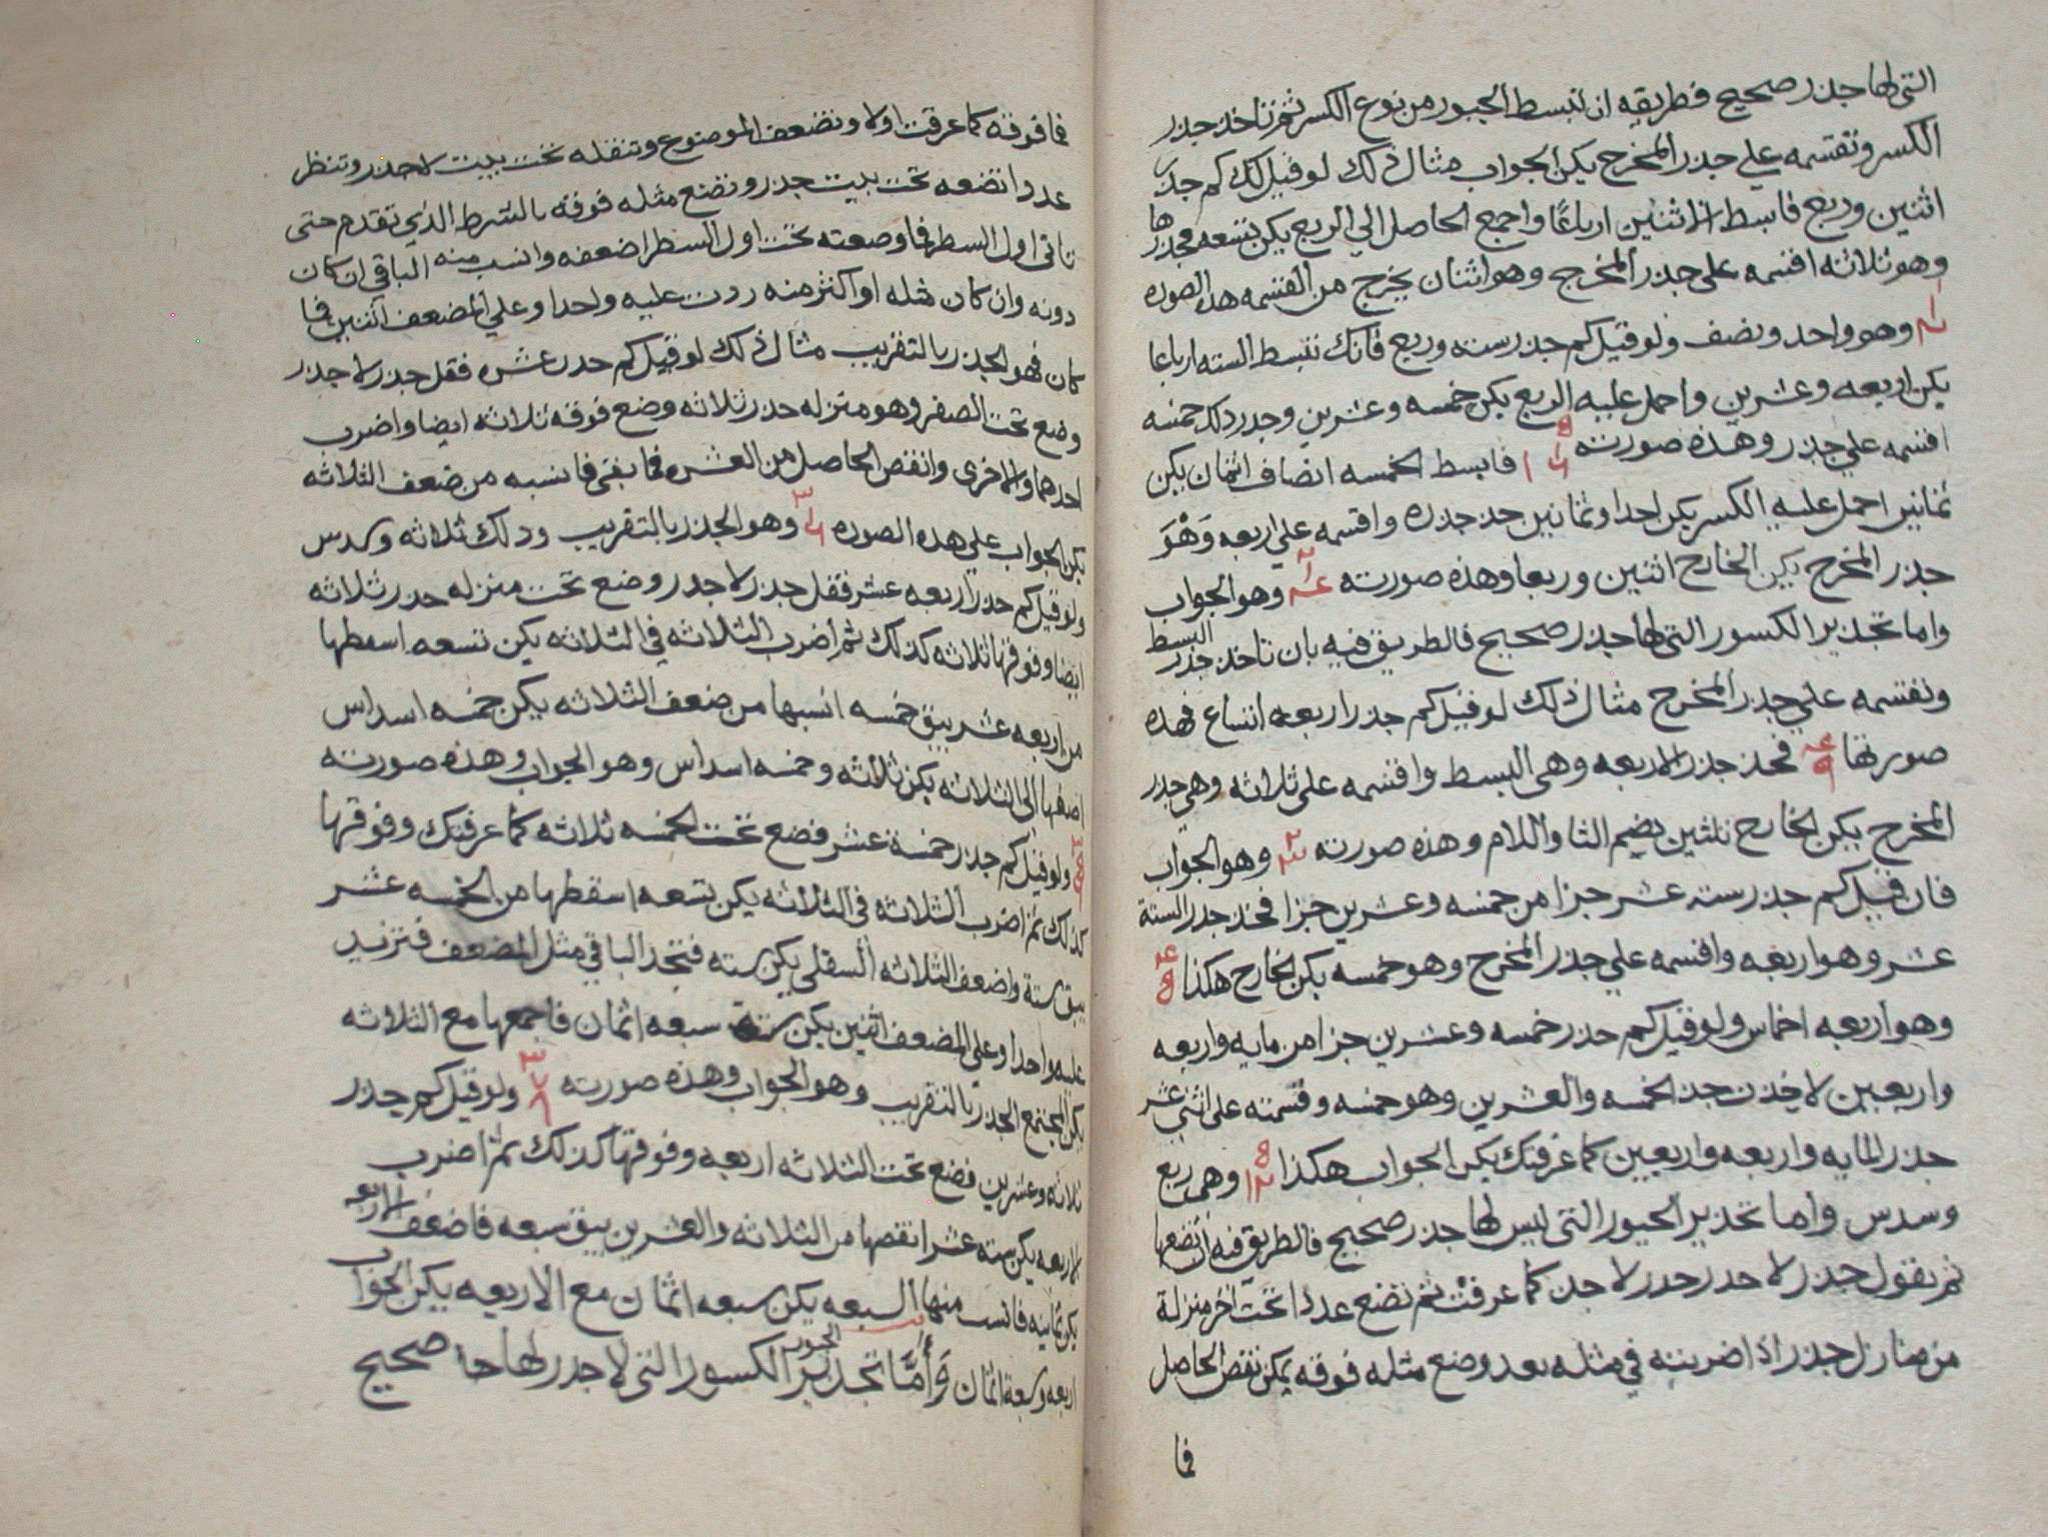 التي لها جذر صحيح فطريقه ان تبسط المجبور من نوع الكسر ثم تاخذ جذر
الكسر وتقسمه علي جذر المخرج يكن الجواب مثال ذلك لو قيل لك كم جذر
اثنين وربع فابسط الاثنين ارباعًا واجمع الحاصل الي الربع يكن تسعه فجذرها
وهو ثلاثه اقسمه علي جذر المخرج وهو اثنان يخرج من القسمه هذه الصوره
وهو واحد ونصف ولو قيل كم جذر سته وربع فانك تبسط السته ارباعا
يكن اربعه وعشرين واحمل عليه الربع يكن خمسه وعشرين وجدر دلك خمسه
اقسمه علي جذر وهذه صورته فابسط الخمسه انصاف اثمان يكن
ثمانين احمل عليه الكسر يكن احدا وثمانين خذ جدره واقسمه علي اربعه وَهْوَ
جذر المخرج يكن الخارح اثنين وربعا وهذه صورته وهو الجواب
واما تجذير الكسور التي لها جذر صحيح فالطريق فيه بان تاخذ جذر البسط
وتقسمه علي جذر المخرج مثال ذلك لو قيل كم جذر اربعه اتساع فهذه
صورتها ٤ ٩ فخذ جذر الاربعه وهي البسط واقسمه علي ثلاثه وهي جذر
المخرج يكن الخارح ثلثين بضم الثا واللام وهذه صورته ٢ ٣ وهو الجواب
فان قيل كم جذر سته عشر جزا من خمسه وعشرين جزا فخذ جذر الستة
عشر وهو اربعه واقسمه علي جذر المخرج وهو خمسه يكن الخارح هكذا ٤ ٥
وهو اربعه اخماس ولو قيل كم جذر خمسه وعشرين جزا من مايه واربعه
واربعين لاخذت جذر الخمسه والعشرين وهو خمسه وقسمته علي اثني عشر
جذر المايه واربعه واربعين كما عرفتك يكن الجواب هكذا ٥ ١٢ وهي ربع
وسدس واما تجذير المجبور التي ليس لها جذر صحيح فالطريق فيه ان تضعها
ثم تقول جذر لا جدر جدر لا جذر كما عرفت ثم تضع عددا تحت اخر منزلة
من منازل جذر اذا ضربته في مثله بعد وضع مثله فوقه يمكن نقص الحاصل
فما
فما فوقه كما عرفت اولا وتضعف الموضوع وتنقله تحت بيت لا جدر وتنظر
عددا تضعه تحت بيت جذر وتضع مثله فوقه بالشرط الذي تقدم حتى
تاتي اول السطر فما وضعته تحت اول السطر اضعفه وانسب منه الباقي ان كان
دونه وان كان مثله او اكثر منه زدت عليه واحدا وعلي المضعف اثنين فما
كان فهو الجذر بالتقريب مثال ذلك لو قيل كم جدر عشره فقل جذر لا جذر
وضع تحت الصفر وهو منزله جذر ثلاثه وضع فوقه ثلاثه ايضا واضرب
احدهما والاخري وانقص الحاصل من العشره فما بقي فانسبه من ضعف الثلاثه
يكن الجواب علي هذه الصوره وهو الجذر بالتقريب ودلك ثلاثه وسدس
ولو قيل كم جذر اربعه عشر فقل جذر لا جذر وضع تحت منزله جدر ثلاثه
ايضا وفوقها ثلاثه كذلك ثم اضرب الثلاثه في الثلاثه يكن تسعه اسقطها
من اربعه عشر يبق خمسه انسبها من ضعف الثلاثه يكن خمسه اسداس
اضفها الي الثلاثه يكن ثلاثه وخمسه اسداس وهو الجواب وهذه صورته
ولو قيل كم جذر خمسة عشر فضع تحت الخمسه ثلاثه كما عرفتك وفوقها
كذلك ثم اضرب الثلاثه في الثلاثه يكن تسعه اسقطها من الخمسه عشر
يبق ستة واضعف الثلاثه السفلي يكن سته فتجد الباقي مثل المضعف فتزيد
عليه واحدا وعلي المضعف اثنين يكن سبعه اثمان فاجمعها مع الثلاثه
يكن المجتمع الجذر بالتقريب وهو الجواب وهذه صورته ٣ ٧ ٨ ولو قيل كم جذر
ثلاثه وعشرين فضع تحت الثلاثه اربعه وفوقها كذلك ثم اضرب
الاربعه يكن سته عشر انقصها من الثلاثه والعشرين يبق سبعه فاضعف الاربعه
يكن ثمانيه فانسب منها السبعه يكن سبعه اثمان مع الاربعه يكن الجواب
اربعه وسبعة اثمان وَأَمَّا تجذير الكسور التي لا جذر لها صحيح